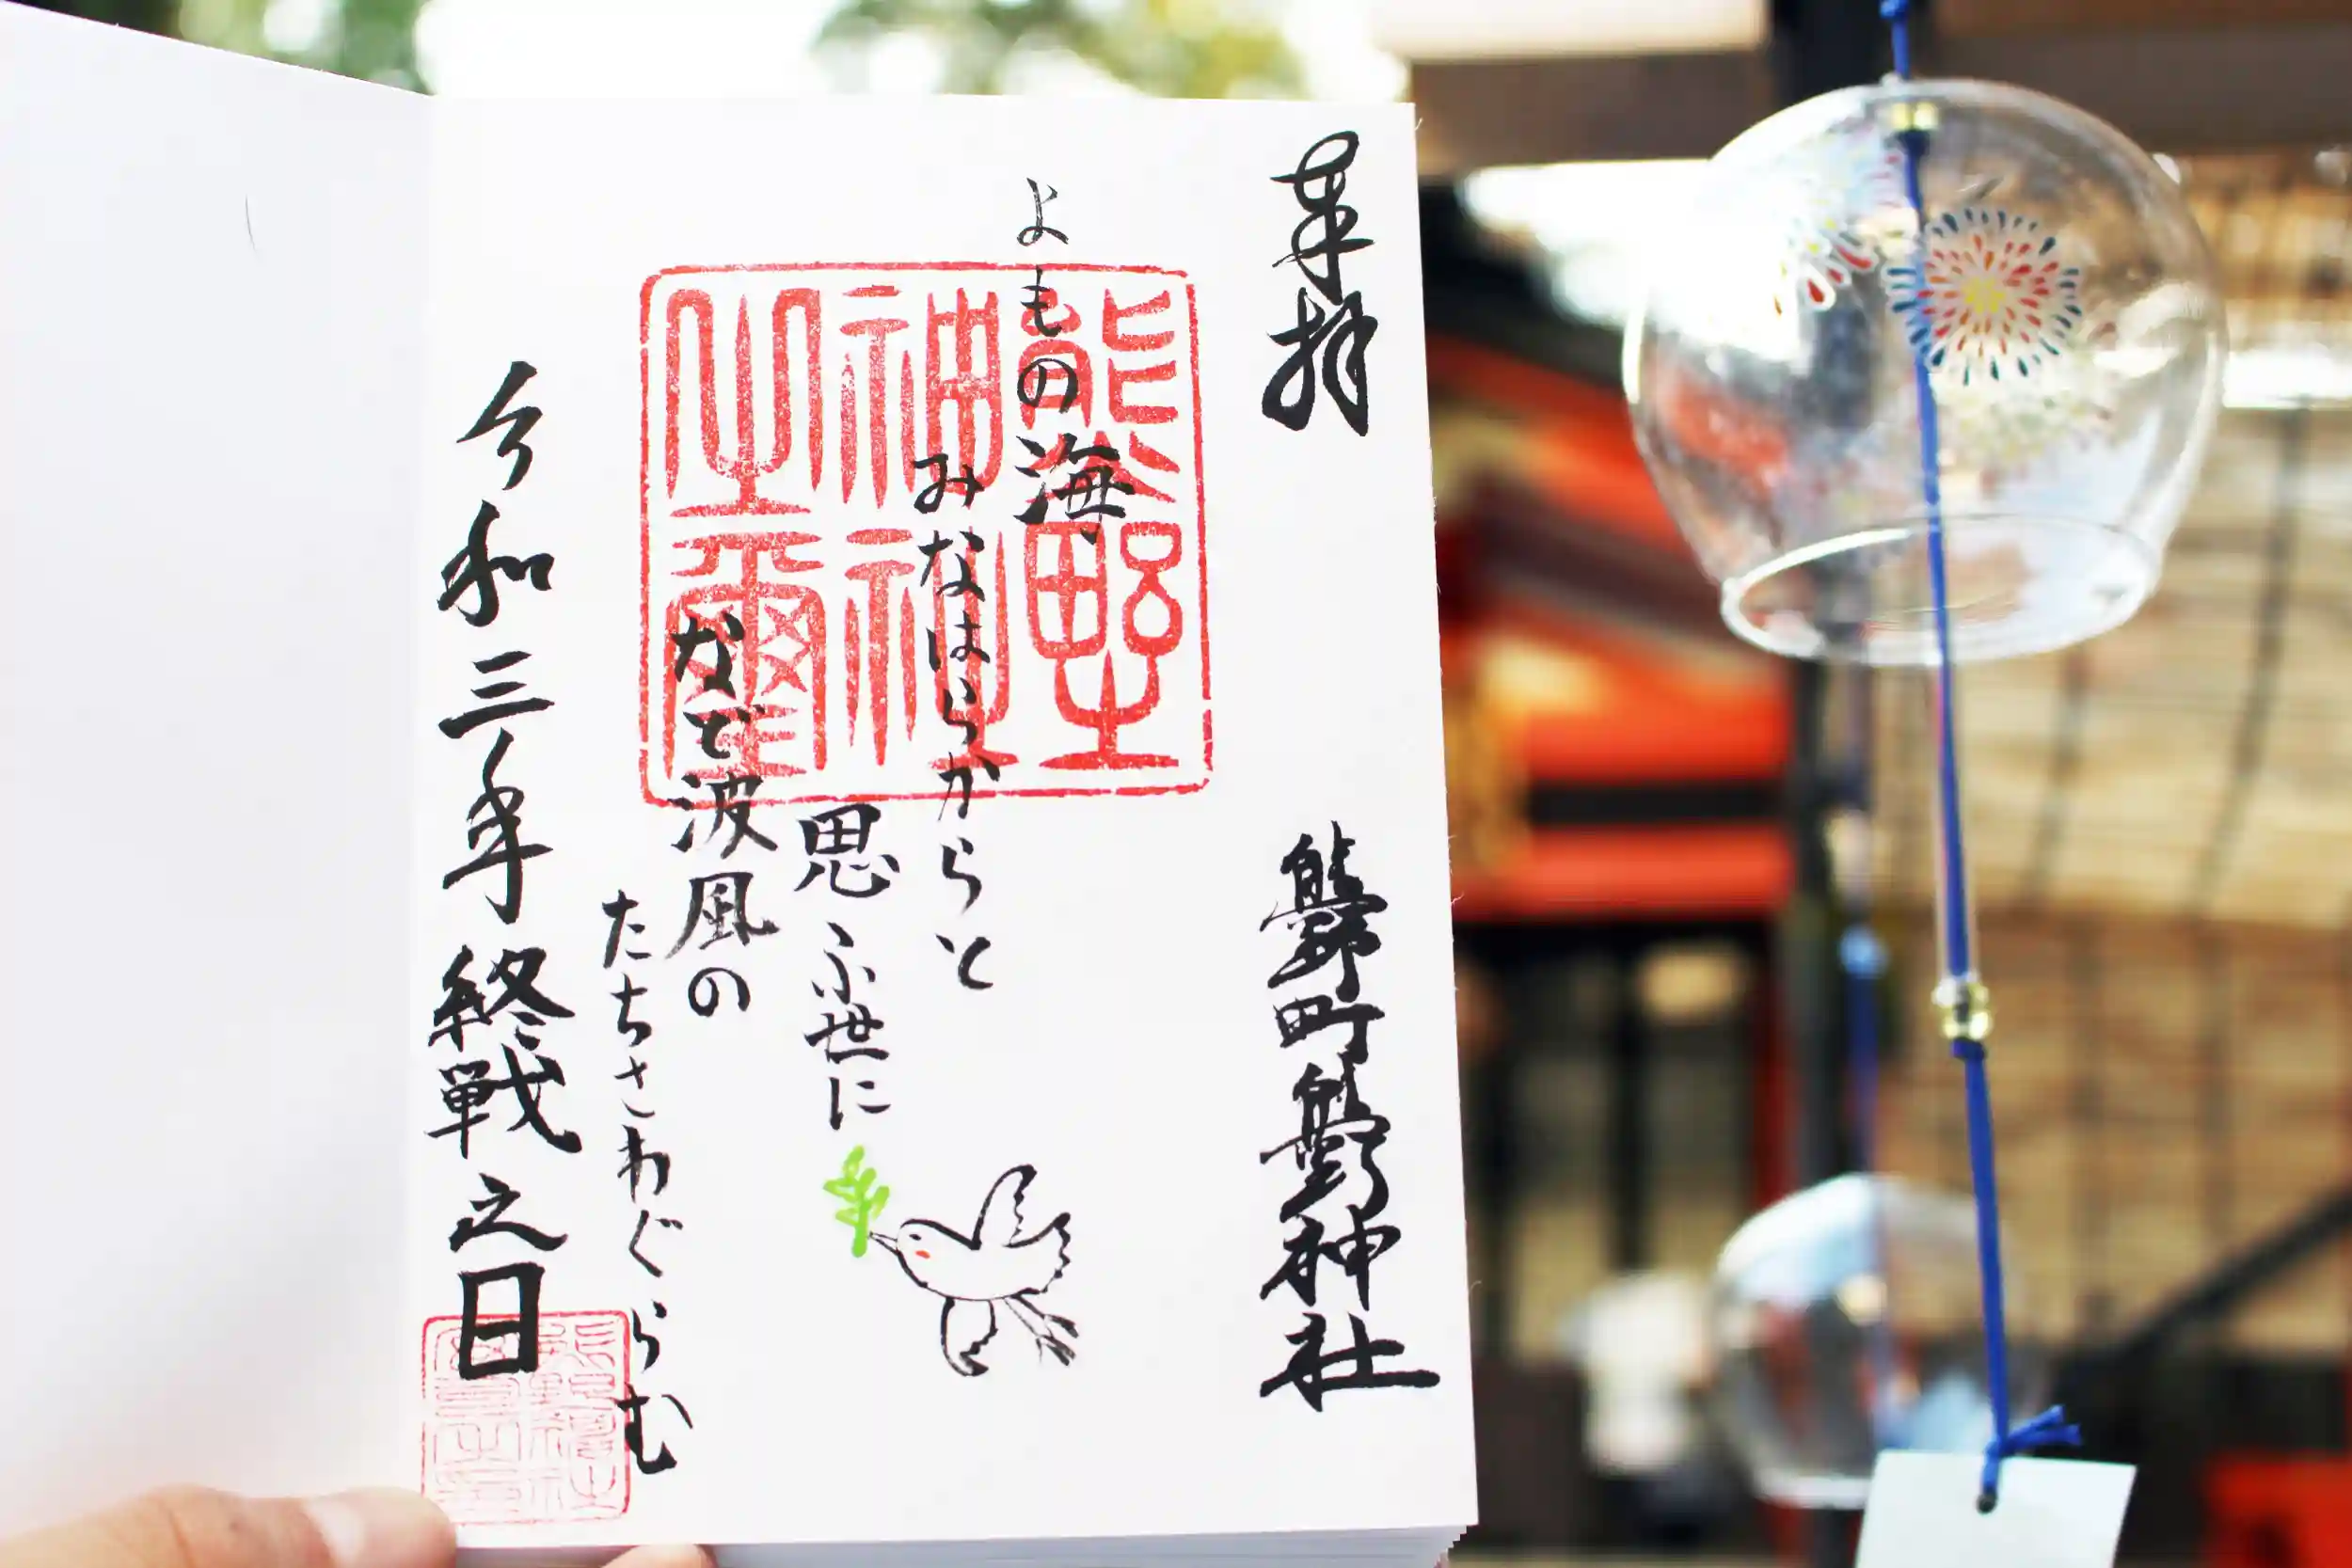 奉拝
熊野町熊野神社
よもの海
みなはらからと
思ふ世に
など波風の
たちさわぐらむ
令和三年終戦之日
熊野
神社
之璽